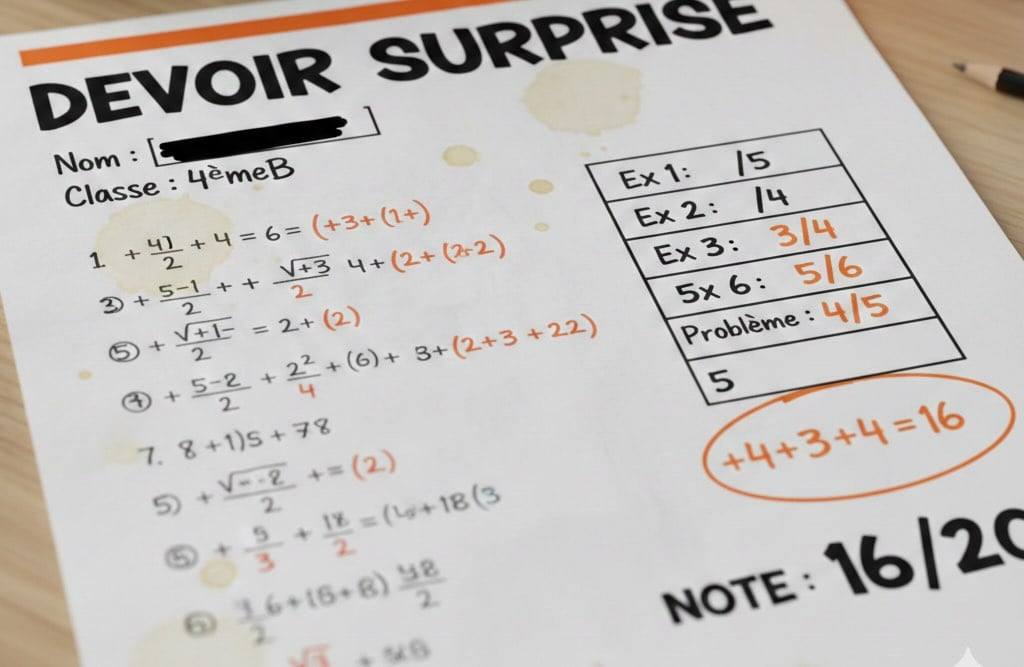 DEVOIR SURPRISE
Nom : [ ]
Classe : 4èmeB
1 + 41/2 + 4 = 6 = (+3+(1+)
3) + 5-1/2 + + √+3/2 4+(2+(2+2)
5 + √+1-/2 = 2+(2)
4 + 5-2/2 + 2²/4 +(6)+ 3+(2+3+22)
7. 8+1)5+78
5) + √--2/2 += (2)
5 + 5/3 + 18/2 = + 18(3
6 6+(8+8) /2
√3
Ex 1: /5
Ex 2: /4
Ex 3: 3/4
5x 6: 5/6
Problème : 4/5
5
+4+3+4=16
NOTE : 16/20